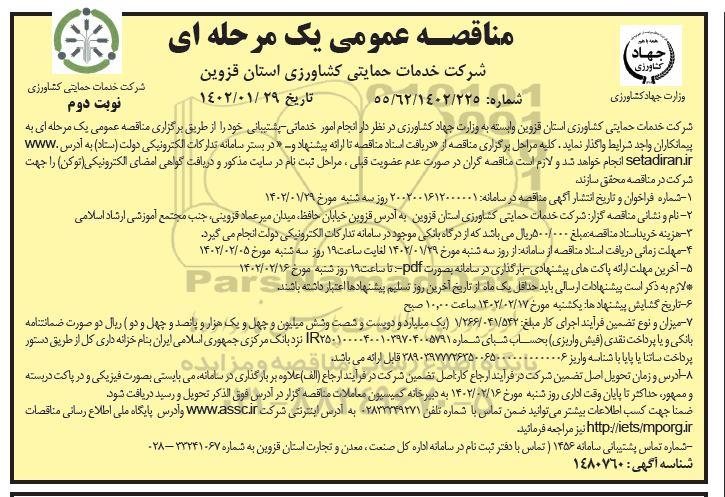 مناقصه عمومی یک مرحله ای
شرکت خدمات حمایتی کشاورزی استان قزوین
شماره: ۵۵/۶۲/۱۴۰۲/۲۲۵ تاریخ ۱۴۰۲/۰۱/۲۹
جهاد کشاورزی
وزارت جهاد کشاورزی
شرکت خدمات حمایتی کشاورزی
نوبت دوم
شرکت خدمات حمایتی کشاورزی استان قزوین وابسته به وزارت جهاد کشاورزی در نظر دارد انجام امور خدماتی-پشتیبانی خود را از طریق برگزاری مناقصه عمومی یک مرحله ای به
پیمانکاران واجد شرایط واگذار نماید. کلیه مراحل برگزاری مناقصه از «دریافت اسناد مناقصه تا ارائه پیشنهاد و... » در بستر سامانه تدارکات الکترونیکی دولت (ستاد) به آدرس www.
setadiran.ir انجام خواهد شد و لازم است مناقصه گران در صورت عدم عضویت قبلی، مراحل ثبت نام در سایت مذکور و دریافت گواهی امضای الکترونیکی(توکن) را جهت
شرکت در مناقصه محقق سازند.
۱-شماره فراخوان و تاریخ انتشار آگهی مناقصه در سامانه: ۲۰۰۲۰۰۱۶۱۲۰۰۰۰۰۱ روز سه شنبه مورخ ۱۴۰۲/۰۱/۲۹
۲-نام و نشانی مناقصه گزار: شرکت خدمات حمایتی کشاورزی استان قزوین به آدرس قزوین خیابان حافظ، میدان میرعماد قزوینی، جنب مجتمع آموزشی ارشاد اسلامی
۳-هزینه خرید اسناد مناقصه:مبلغ ۵۰۰/۰۰۰ریال می باشد که از درگاه بانکی موجود در سامانه تدارکات الکترونیکی دولت انجام می گیرد.
۴-مهلت زمانی دریافت اسناد مناقصه از سامانه: از روز سه شنبه مورخ ۱۴۰۲/۰۱/۲۹ لغایت ساعت۱۹ روز سه شنبه مورخ ۱۴۰۲/۰۲/۰۵
۵-آخرین مهلت ارائه پاکت های پیشنهادی-بارگذاری در سامانه بصورت pdf-: تا ساعت۱۹ روز شنبه مورخ ۱۴۰۲/۰۲/۱۶
*لازم به ذکر است پیشنهادات ارسالی باید حداقل یک ماه از تاریخ آخرین روز تسلیم پیشنهادها اعتبار داشته باشند.
۶-تاریخ گشایش پیشنهاد ها: یکشنبه مورخ ۱۴۰۲/۰۲/۱۷ ساعت ۱۰,۰۰ صبح
۷-میزان و نوع تضمین فرآیند اجرای کار مبلغ: ۱/۲۶۶/۰۴۱/۵۴۲ (یک میلیارد و دویست و شصت وشش میلیون و چهل و یک هزار و پانصد و چهل و دو ) ریال دو صورت ضمانتنامه
بانکی و یا پرداخت نقدی (فیش واریزی) بحساب شبای شماره IR۲۵۰۱۰۰۰۰۴۰۰۱۰۳۹۷۰۴۰۰۵۷۹۱ نزد بانک مرکزی جمهوری اسلامی ایران بنام خزانه داری کل از طریق دستور
پرداخت ساتنا یا پایا با شناسه واریز قابل ارائه می باشد.
۸-آدرس و زمان تحویل اصل تضمین شرکت در فرآیند ارجاع کار:اصل تضمین شرکت در فرآیند ارجاع (الف)علاوه بر بارگذاری در سامانه، می بایستی بصورت فیزیکی و در پاکت دربسته
و ممهور، حداکثر تا پایان وقت اداری روز شنبه مورخ ۱۴۰۲/۰۲/۱۶ به دبیرخانه کمیسیون معاملات مناقصه گزار در آدرس فوق الذکر تحویل و رسید دریافت شود.
ضمنا جهت کسب اطلاعات بیشتر می‌توانید ضمن تماس با شماره تلفن ۰۲۸۳۳۳۴۹۲۷۱ به آدرس اینترنتی شرکت www.assc.ir وآدرس پایگاه ملی اطلاع رسانی مناقصات
http://iets/mporg.ir نیز مراجعه فرمائید.
-شماره تماس پشتیبانی سامانه ۱۴۵۶ ( تماس با دفتر ثبت نام در سامانه اداره کل صنعت ، معدن و تجارت استان قزوین به شماره ۳۳۲۴۱۰۶۷-۰۲۸
شناسه آگهی: ۱۴۸۰۷۶۰